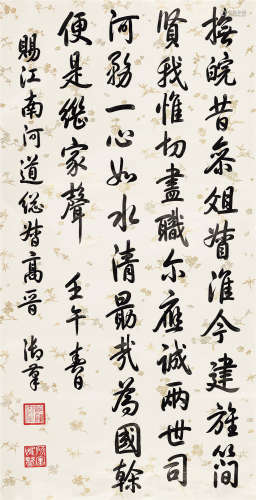 撫皖昔參俎督淮今建旌簡
賢我惟切盡職尔應誠兩世司
河務一心如水清勗哉為國幹
便是繼家聲 壬午春
賜江南河道總督高晋 御筆